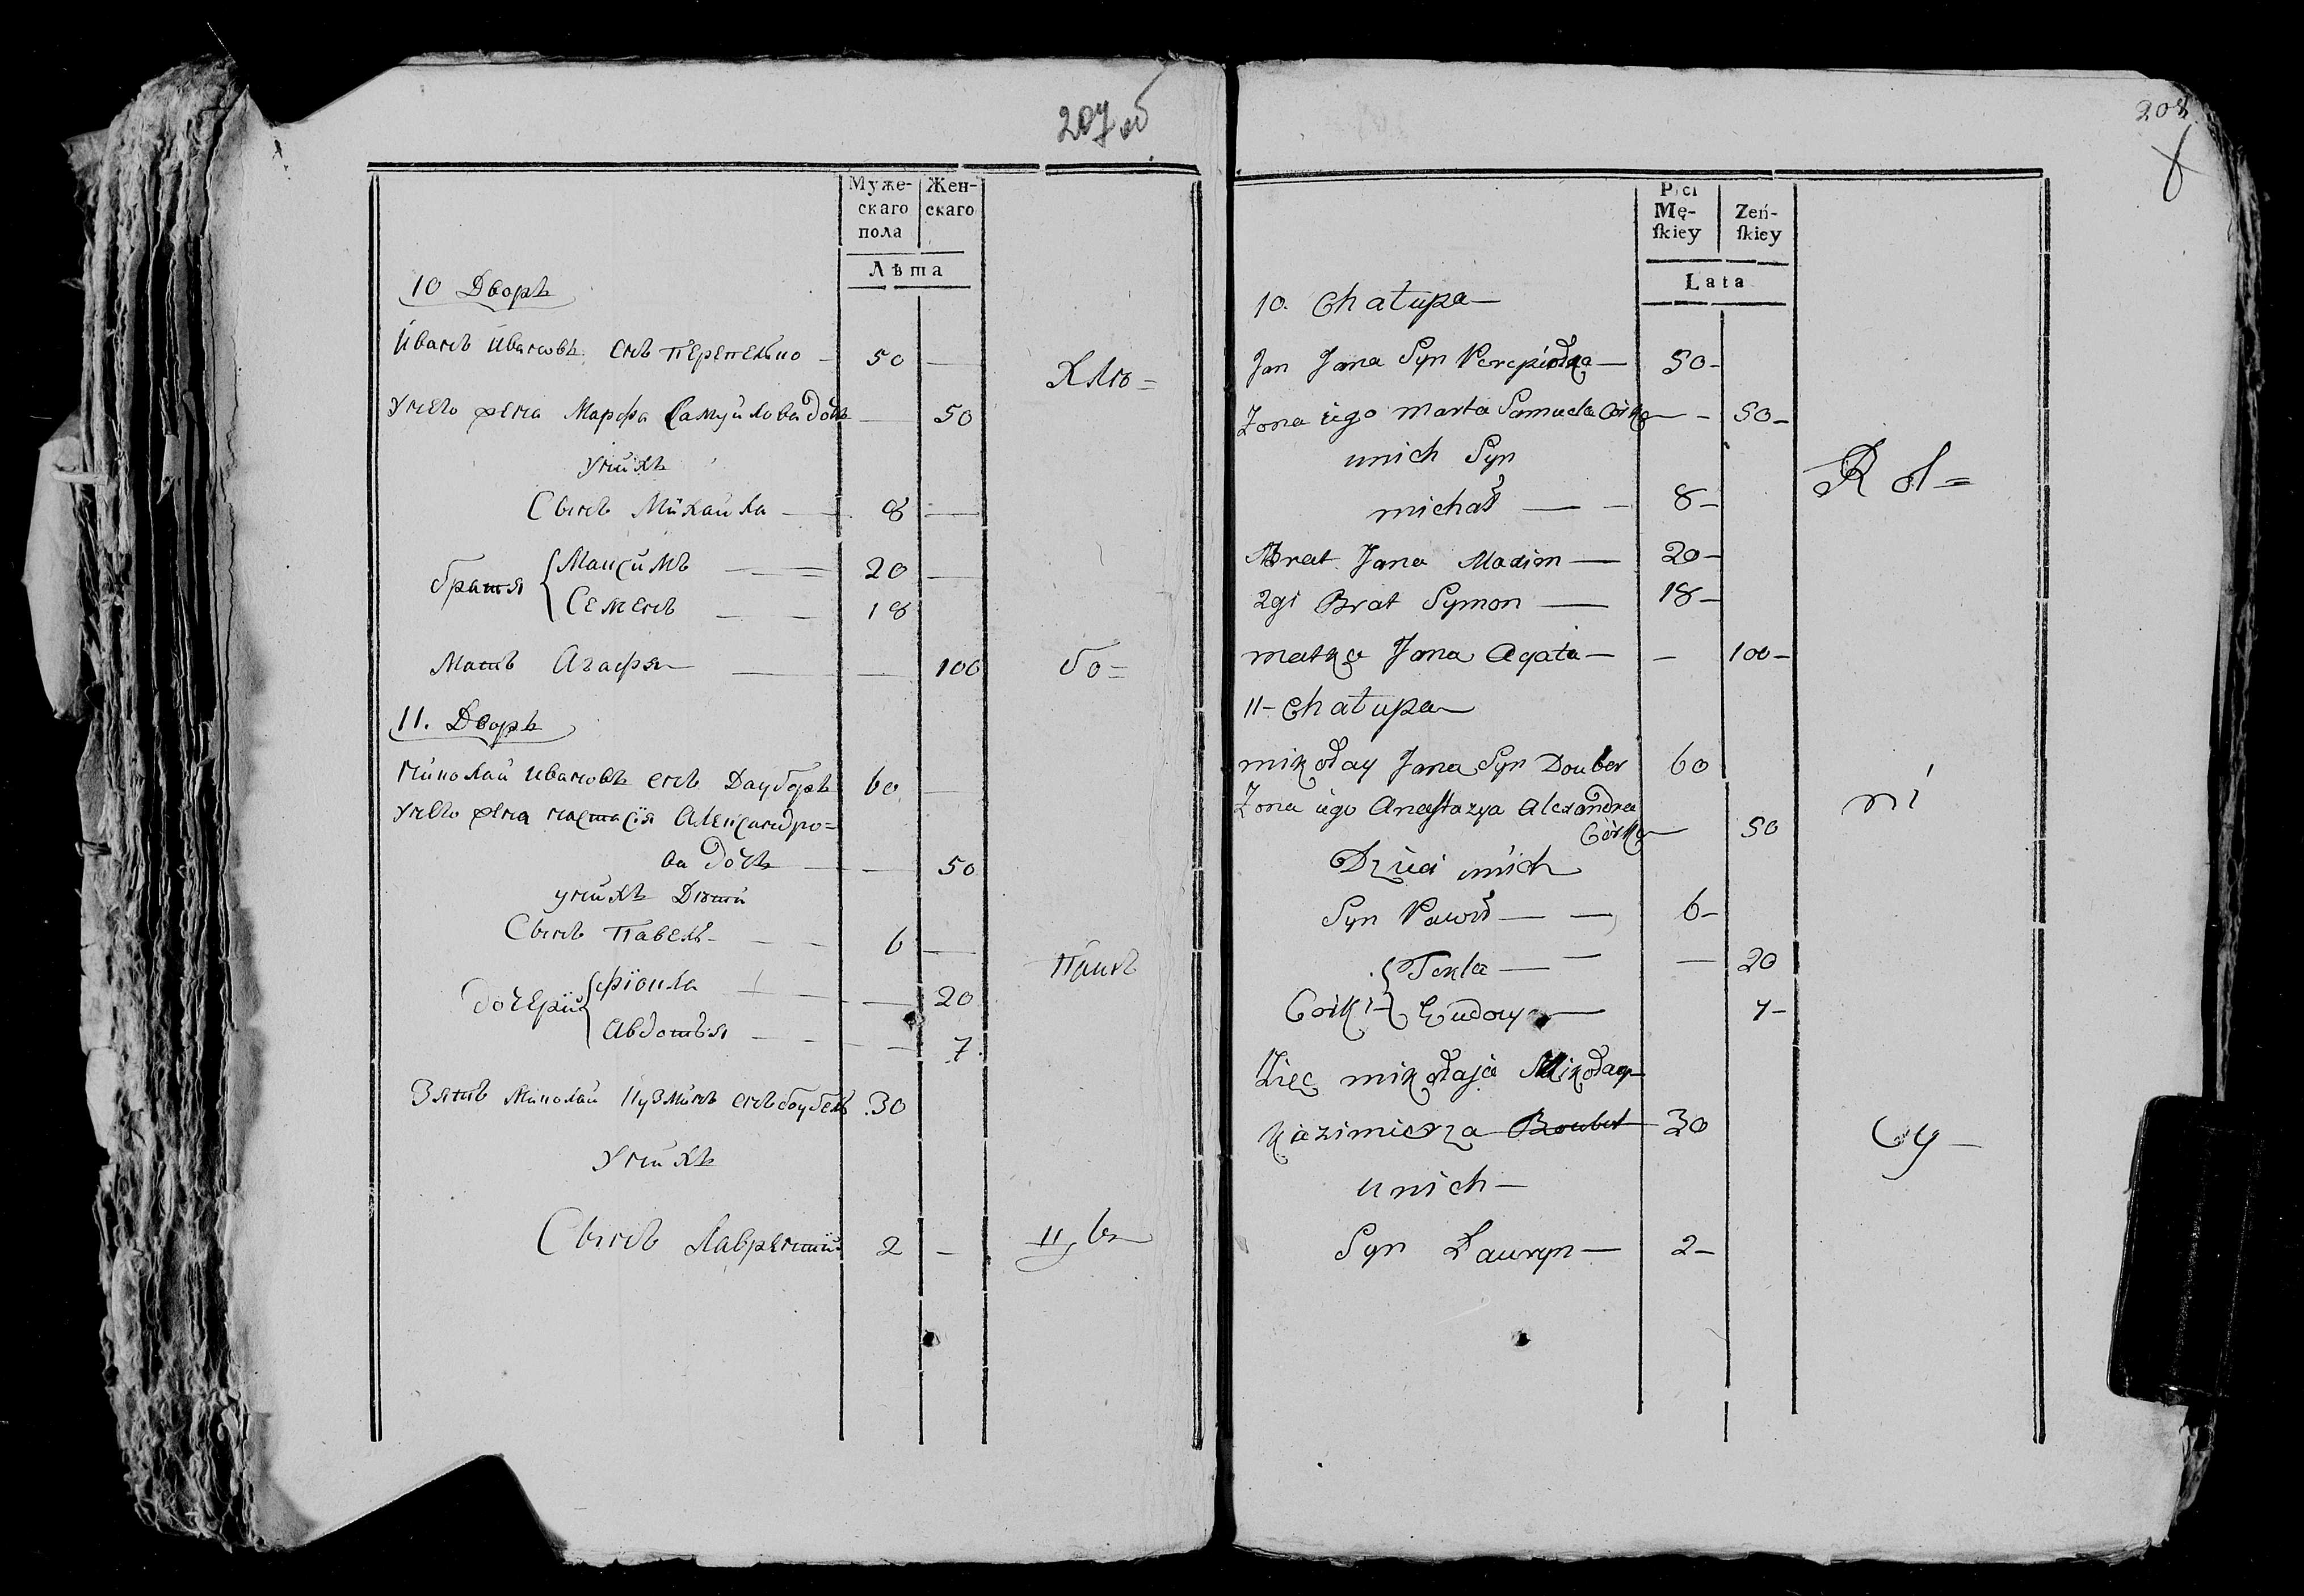 207 об
Муже-
скаго
пола
Жен-
скаго
Лѣта
10 Дворъ
Иванъ Ивановъ снъ Перепелко — 50 —
Унего жена Марфа Самуйлова дочь — 50
Унихъ
Сынъ Михайла — 8 —
братя { Максимъ — 20 —
Семенъ — 18
Мать Агафья — 100
11. Дворъ
Николай Ивановъ снъ Дауборъ 60 —
Унего жена настасія Александро=
ва дочь — 50
унихъ Дѣти
Сынъ Павелъ — 6 —
дочерїи { фіокла — 20
Авдотья — 7
Зять Николай Кузминъ снъ боубелъ 30
Унихъ
Сынъ Лаврентий 2 —
Клю=
бо=
Никъ
208
Płci
Mę-
ſkiey
Zeń-
ſkiey
Lata
10. Chałupa —
Jan Jana Syn Perepiołka — 50 —
Żona iego Marta Samuela Córka — 50 —
unich Syn
michał — 8 —
Brat Jana Maxim — 20 —
2gi Brat Symon — 18 —
matka Jana Agata — — 100 —
11 — Chałupa —
mikołay Jana Syn Douber 60
Żona iego Anastazya Alexandra
Córka — 50
Dzieci unich
Syn Paweł — 6 —
{ Tekla — — 20
Córki { Eudoxya — 7 —
Zięć mikołaja Mikołay
Kazimierza Boubel 30
unich —
Syn Ławryn — 2 —
Rol=
ni
cy —